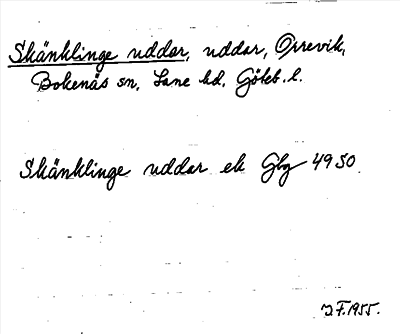 Skänklinge uddar, uddar, Orrevik,
Bokenäs sn, Lane hd, Göteb. l.
Skänklinge uddar ek Gbg 4950
J.F. 1955.